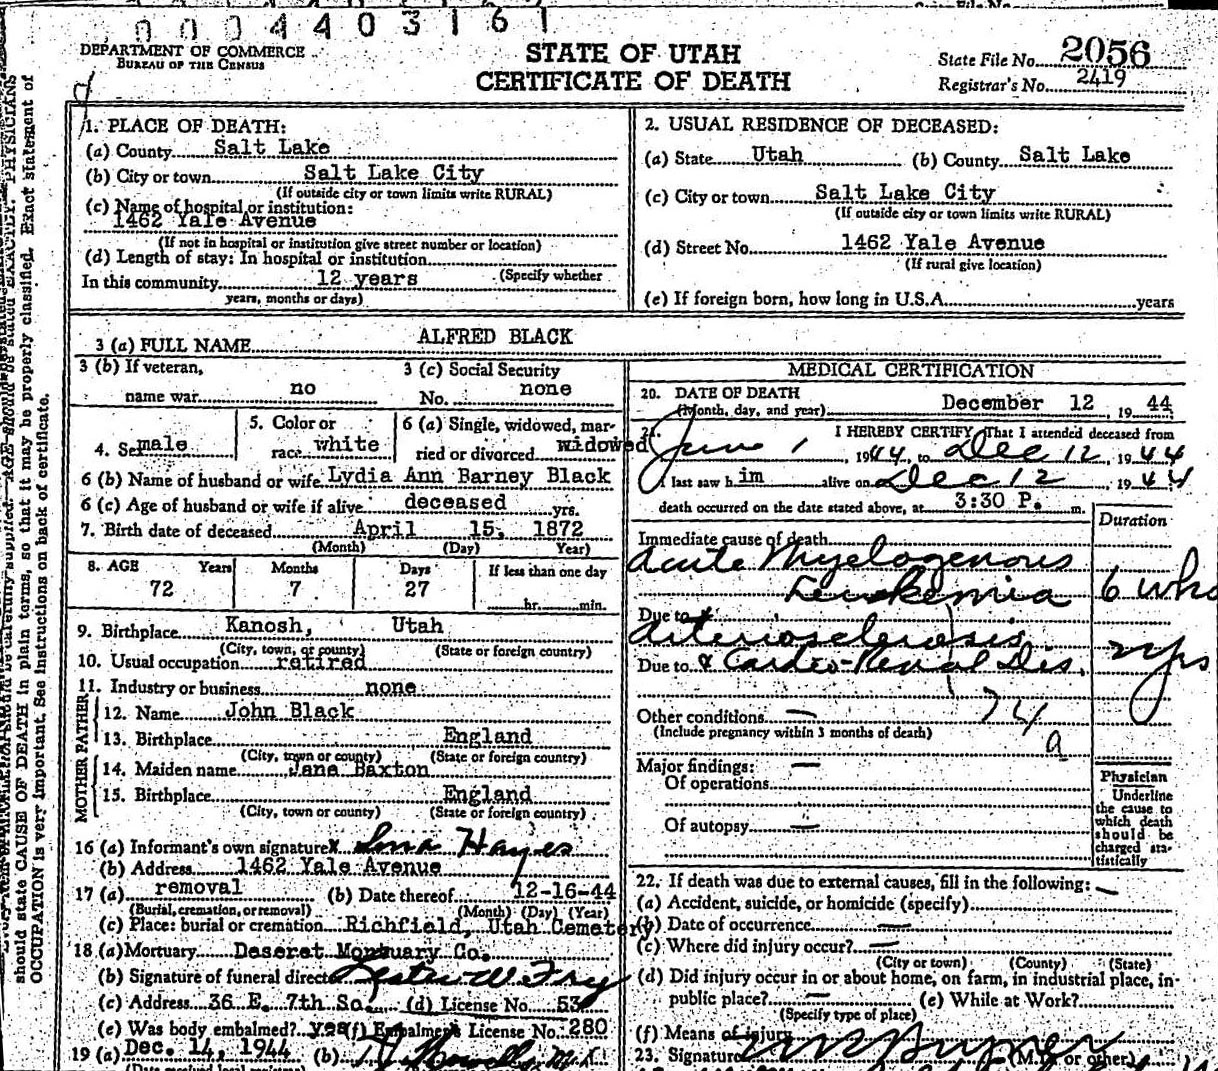 0004403161
DEPARTMENT OF COMMERCE
BUREAU OF THE CENSUS
STATE OF UTAH
CERTIFICATE OF DEATH
State File No. 2056
Registrar's No. 2419
1. PLACE OF DEATH:
(a) County Salt Lake
(b) City or town Salt Lake City
(If outside city or town limits write RURAL)
(c) Name of hospital or institution:
1462 Yale Avenue
(If not in hospital or institution give street number or location)
(d) Length of stay: In hospital or institution
(Specify whether
In this community 12 years
years, months or days)
2. USUAL RESIDENCE OF DECEASED:
(a) State Utah (b) County Salt Lake
(c) City or town Salt Lake City
(If outside city or town limits write RURAL)
(d) Street No. 1462 Yale Avenue
(If rural give location)
(e) If foreign born, how long in U.S.A. years
3 (a) FULL NAME ALFRED BLACK
3 (b) If veteran,
name war no
3 (c) Social Security
No. none
4. Sex male
5. Color or
race white
6 (a) Single, widowed, mar-
ried or divorced widowed
6 (b) Name of husband or wife Lydia Ann Barney Black
6 (c) Age of husband or wife if alive deceased yrs.
7. Birth date of deceased April 15, 1872
(Month) (Day) Year)
8. AGE Years Months Days If less than one day
72 7 27
hr. min.
9. Birthplace Kanosh, Utah
(City, town, or county) (State or foreign country)
10. Usual occupation retired
11. Industry or business none
FATHER
12. Name John Black
13. Birthplace England
(City, town or county) (State or foreign country)
MOTHER
14. Maiden name Jane Baxton
15. Birthplace England
(City, town or county) (State or foreign country)
16 (a) Informant's own signature x Hayes
(b) Address 1462 Yale Avenue
17 (a) removal (b) Date thereof 12-16-44
(Burial, cremation, or removal) (Month) (Day) (Year)
(c) Place: burial or cremation Richfield, Utah Cemetery
18 (a) Mortuary Deseret Mortuary Co.
(b) Signature of funeral director
(c) Address 36 E. 7th So. (d) License No. 53
(e) Was body embalmed? yes (f) Embalmer's License No. 280
19 (a) Dec. 14, 1944 (b)
(Date received local registrar)
MEDICAL CERTIFICATION
20. DATE OF DEATH
(Month, day, and year) December 12, 1944
21. I HEREBY CERTIFY, That I attended deceased from
June 1, 1944, to Dec 12, 1944
I last saw him alive on Dec 12 1944
death occurred on the date stated above, at 3:30 P. m.
Duration
Immediate cause of death
Acute Myelogenous
Leukemia 6 wks
Due to
Arteriosclerosis
Due to & Cardio-Renal Dis. yrs
74
a
Other conditions —
(Include pregnancy within 3 months of death)
Major findings: —
Of operations
Of autopsy —
Physician
Underline
the cause to
which death
should be
charged sta-
tistically
22. If death was due to external causes, fill in the following: —
(a) Accident, suicide, or homicide (specify)
(b) Date of occurrence —
(c) Where did injury occur? —
(City or town) (County) (State)
(d) Did injury occur in or about home, on farm, in industrial place, in-
public place? — (e) While at Work?
(Specify type of place)
(f) Means of injury
23. Signature (M.D. or other)
should state CAUSE OF DEATH in plain terms, so that it may be properly classified. Exact statement of
OCCUPATION is very important. See instructions on back of certificate.